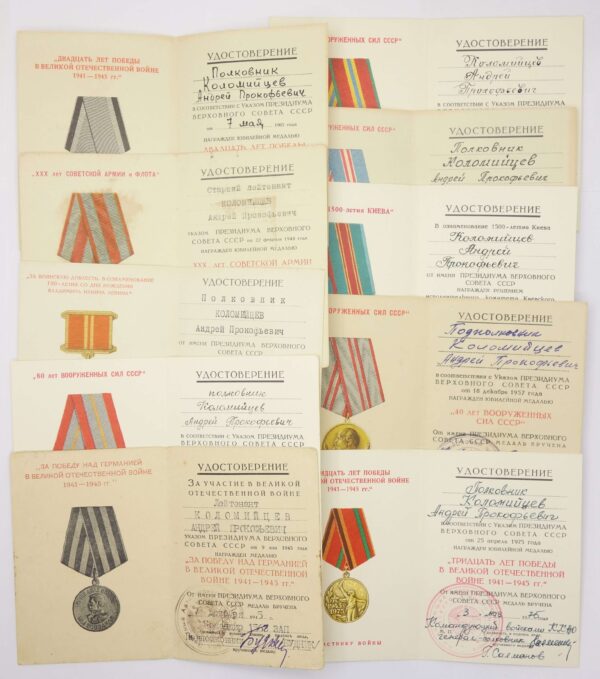 „ДВАДЦАТЬ ЛЕТ ПОБЕДЫ
В ВЕЛИКОЙ ОТЕЧЕСТВЕННОЙ ВОЙНЕ
1941—1945 гг."
УДОСТОВЕРЕНИЕ
Полковник
Коломийцев
Андрей Прокофьевич
В СООТВЕТСТВИИ С УКАЗОМ ПРЕЗИДИУМА
ВЕРХОВНОГО СОВЕТА СССР
от 7 мая 1965 года
НАГРАЖДЕН ЮБИЛЕЙНОЙ МЕДАЛЬЮ
ДВАДЦАТЬ ЛЕТ ПОБЕДЫ
„XXX лет СОВЕТСКОЙ АРМИИ и ФЛОТА"
УДОСТОВЕРЕНИЕ
Старший лейтенант
КОЛОМИЙЦЕВ
Андрей Прокофьевич
УКАЗОМ ПРЕЗИДИУМА ВЕРХОВНОГО
СОВЕТА СССР от 22 февраля 1948 года
НАГРАЖДЕН ЮБИЛЕЙНОЙ МЕДАЛЬЮ
XXX лет СОВЕТСКОЙ АРМИИ
„ЗА ВОИНСКУЮ ДОБЛЕСТЬ. В ОЗНАМЕНОВАНИЕ
100-ЛЕТИЯ СО ДНЯ РОЖДЕНИЯ
ВЛАДИМИРА ИЛЬИЧА ЛЕНИНА"
УДОСТОВЕРЕНИЕ
Полковник
КОЛОМИЙЦЕВ
Андрей Прокофьевич
ОТ ИМЕНИ ПРЕЗИДИУМА ВЕРХОВНОГО
СОВЕТА СССР
„60 лет ВООРУЖЕННЫХ СИЛ СССР"
УДОСТОВЕРЕНИЕ
полковник
Коломийцев
Андрей Прокофьевич
В СООТВЕТСТВИИ С УКАЗОМ ПРЕЗИДИУМА
„ЗА ПОБЕДУ НАД ГЕРМАНИЕЙ
В ВЕЛИКОЙ ОТЕЧЕСТВЕННОЙ ВОЙНЕ
1941—1945 гг."
УДОСТОВЕРЕНИЕ
ЗА УЧАСТИЕ В ВЕЛИКОЙ
ОТЕЧЕСТВЕННОЙ ВОЙНЕ
Лейтенант
КОЛОМИЙЦЕВ
АНДРЕЙ ПРОКОФЬЕВИЧ
УКАЗОМ ПРЕЗИДИУМА ВЕРХОВНОГО
СОВЕТА СССР от 9 мая 1945 года
НАГРАЖДЕН МЕДАЛЬЮ
"ЗА ПОБЕДУ НАД ГЕРМАНИЕЙ
В ВЕЛИКОЙ ОТЕЧЕСТВЕННОЙ
ВОЙНЕ 1941—1945 гг."
От имени ПРЕЗИДИУМА ВЕРХОВНОГО
СОВЕТА СССР МЕДАЛЬ ВРУЧЕНА
ВООРУЖЕННЫХ СИЛ СССР"
УДОСТОВЕРЕНИЕ
Коломийцев
Андрей
Прокофьевич
В СООТВЕТСТВИИ С УКАЗОМ ПРЕЗИДИУМА
ВЕРХОВНОГО СОВЕТА СССР
ВООРУЖЕННЫХ СИЛ СССР"
УДОСТОВЕРЕНИЕ
Полковник
Коломийцев
Андрей Прокофьевич
1500-летия КИЕВА"
УДОСТОВЕРЕНИЕ
В ознаменование 1500-летия Киева
Коломийцев
Андрей
Прокофьевич
ОТ ИМЕНИ ПРЕЗИДИУМА ВЕРХОВНОГО
СОВЕТА СССР
НАГРАЖДЕН РЕШЕНИЕМ
исполнительного комитета Киевского
ВООРУЖЕННЫХ СИЛ СССР"
УДОСТОВЕРЕНИЕ
Подполковник
Коломийцев
Андрей Прокофьевич
В СООТВЕТСТВИИ С УКАЗОМ ПРЕЗИДИУМА
ВЕРХОВНОГО СОВЕТА СССР
от 18 декабря 1957 года
НАГРАЖДЕН ЮБИЛЕЙНОЙ МЕДАЛЬЮ
"40 лет ВООРУЖЕННЫХ
СИЛ СССР"
От имени ПРЕЗИДИУМА ВЕРХОВНОГО
СОВЕТА СССР МЕДАЛЬ ВРУЧЕНА
ДЦАТЬ ЛЕТ ПОБЕДЫ
ОТЕЧЕСТВЕННОЙ ВОЙНЕ
1941—1945 гг."
УЧАСТНИКУ ВОЙНЫ
УДОСТОВЕРЕНИЕ
Полковник
Коломийцев
Андрей Прокофьевич
В СООТВЕТСТВИИ С УКАЗОМ ПРЕЗИДИУМА
ВЕРХОВНОГО СОВЕТА СССР
от 25 апреля 1975 года
НАГРАЖДЕН ЮБИЛЕЙНОЙ МЕДАЛЬЮ
"ТРИДЦАТЬ ЛЕТ ПОБЕДЫ
В ВЕЛИКОЙ ОТЕЧЕСТВЕННОЙ
ВОЙНЕ 1941—1945 гг."
ОТ ИМЕНИ ПРЕЗИДИУМА ВЕРХОВНОГО
СОВЕТА СССР МЕДАЛЬ ВРУЧЕНА
Командующий войсками ККВО
генерал-полковник
Г. Салманов